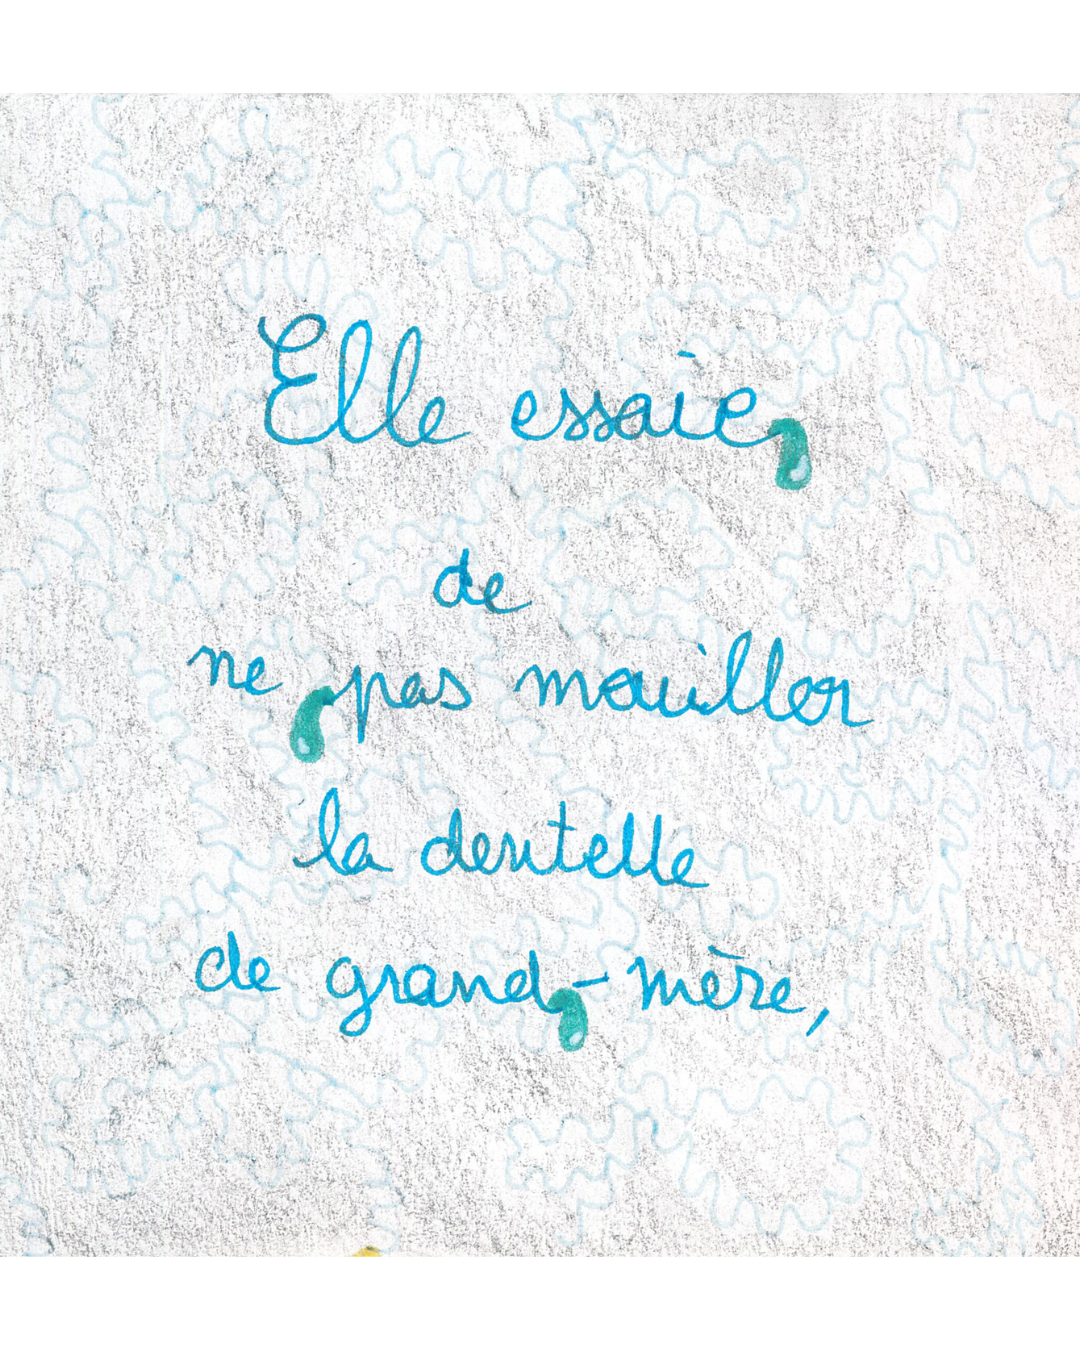 Elle essaie
de
ne pas mouiller
la dentelle
de grand-mère,